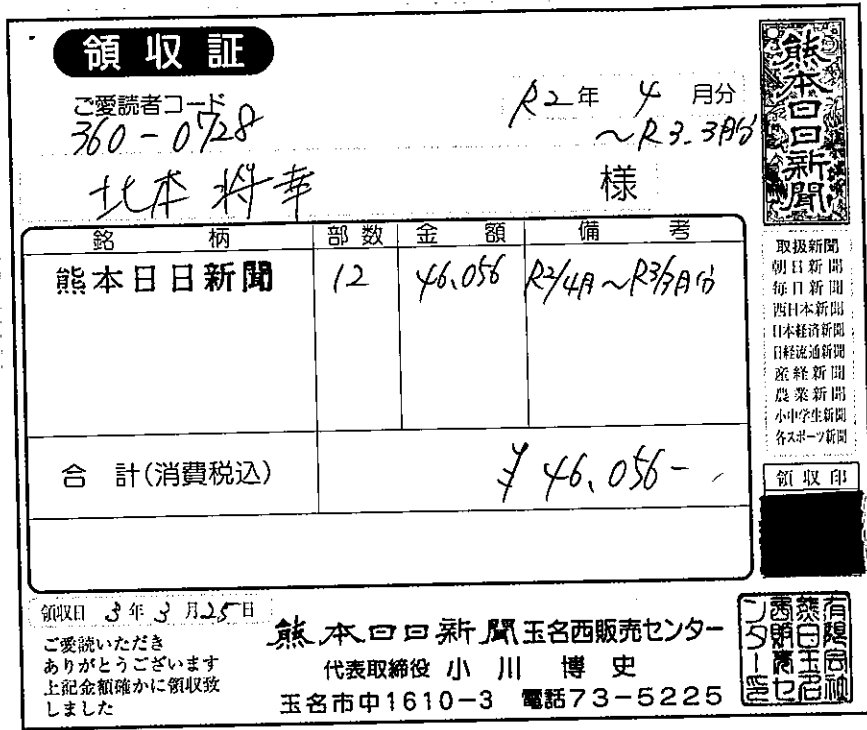 領収証
ご愛読者コード
360-0728
R2年 4月分
～R3.3月分
北本 将幸 様
銘柄 部数 金額 備考
熊本日日新聞 12 46,056 R2/4月～R3/3月分
合 計(消費税込) ¥46,056-
熊本日日新聞
取扱新聞
朝日新聞
毎日新聞
西日本新聞
日本経済新聞
日経流通新聞
産経新聞
農業新聞
小中学生新聞
各スポーツ新聞
領収印
領収日 3年3月25日
ご愛読いただき
ありがとうございます
上記金額確かに領収致
しました
熊本日日新聞玉名西販売センター
代表取締役 小川 博史
玉名市中1610-3 電話73-5225
有限会社
熊日玉名
西販売セ
ンター印